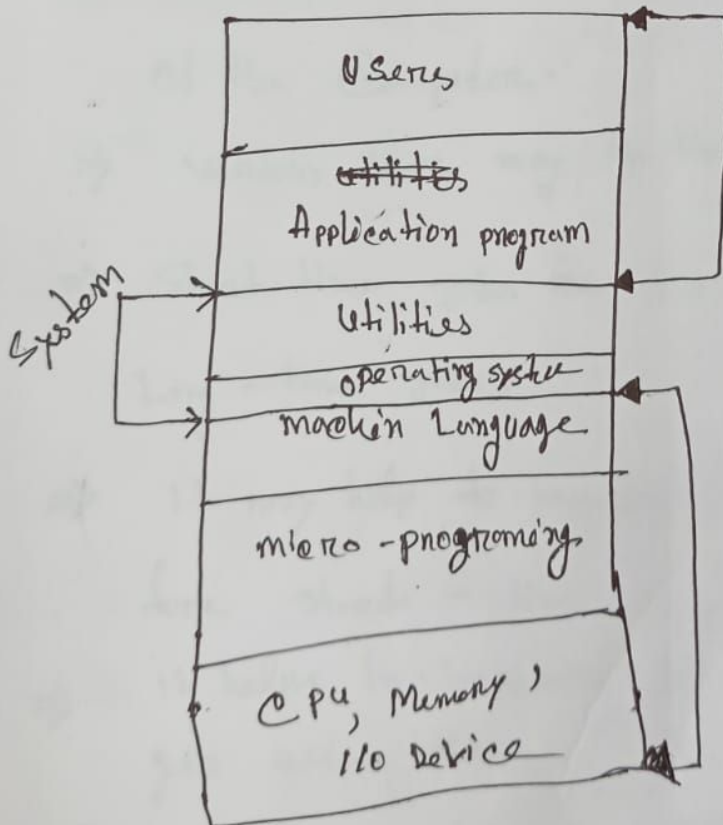 Users
Application program
System
Utilities
operating system
machin Language
micro-programing
CPU, Memory,
I/O Device